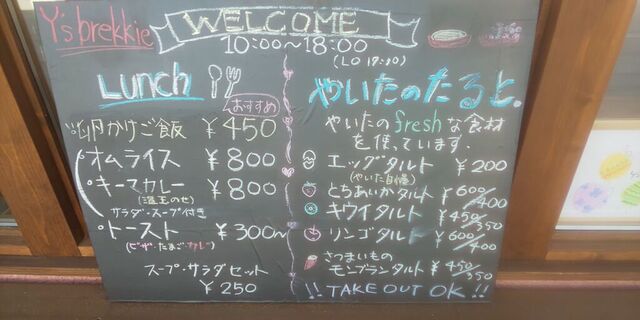 Y's brekkie
WELCOME
10:00～18:00
(LO 17:00)
Lunch
おすすめ
卵かけご飯 ¥450
オムライス ¥800
キーマカレー ¥800
(温玉のせ)
サラダ・スープ付き
トースト ¥300～
(ピザ・たまご・カレー)
スープ・サラダセット
¥250
やいたのたると。
やいたのfreshな食材
を使っています。
エッグタルト ¥200
(やいた自慢)
とちあいかタルト ¥600/400
キウイタルト ¥450/350
リンゴタルト ¥600/400
さつまいもの
モンブランタルト ¥450/350
!! TAKE OUT OK !!